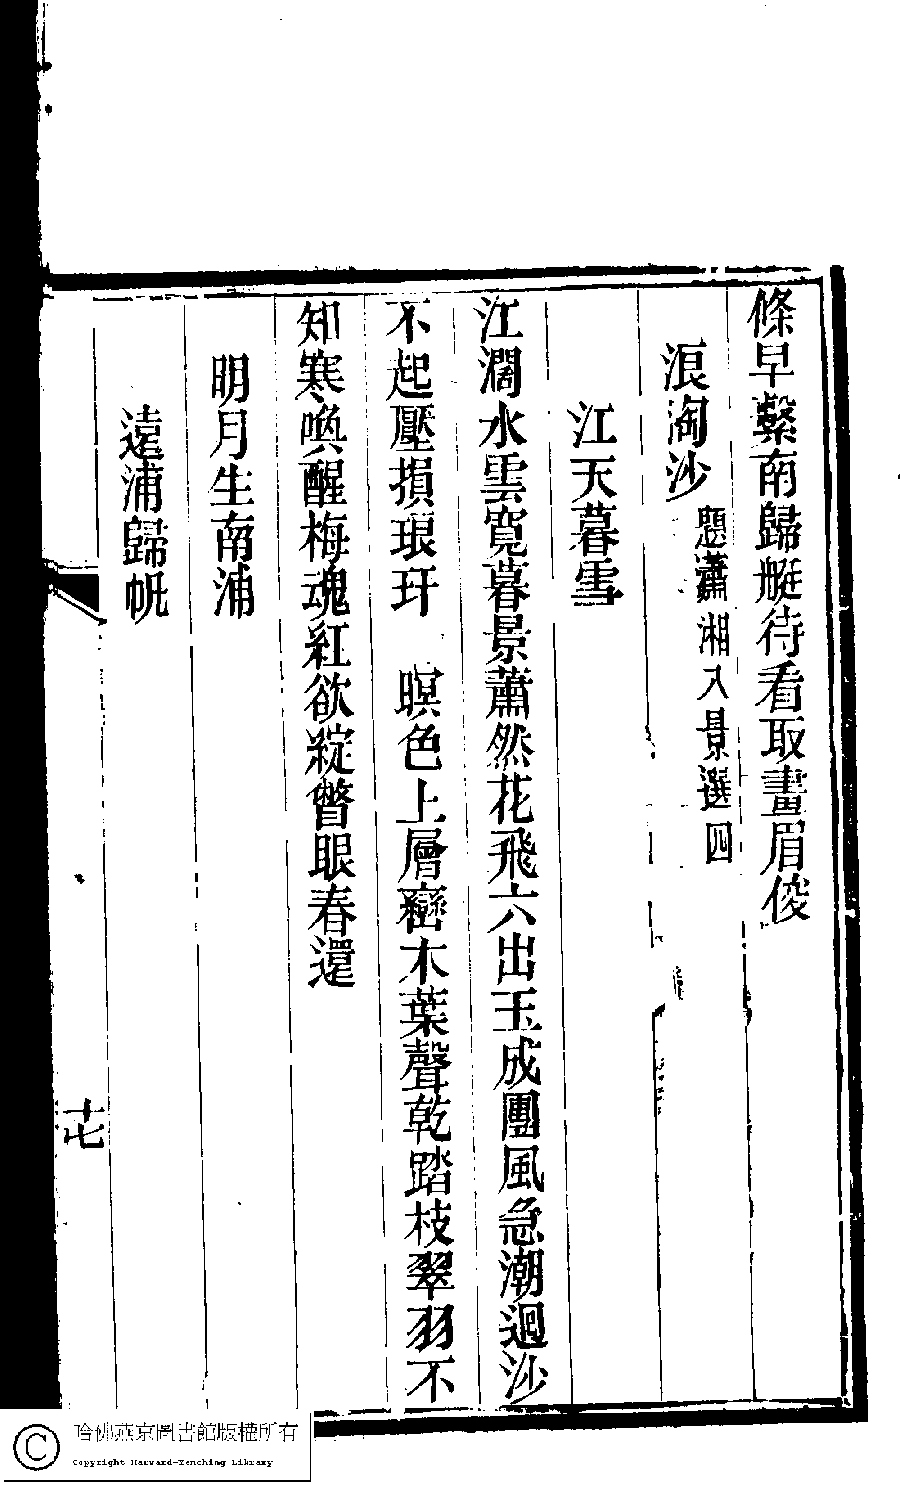 條早繫南歸艇待看取畫眉俊
浪淘沙 題瀟湘八景選四
江天暮雪
江濶水雲寬暮景蕭然花飛六出玉成團風急潮迴沙
不起壓損琅玕 暝色上層巒木葉聲乾踏枝翠羽不
知寒喚醒梅魂紅欲綻瞥眼春還
明月生南浦
遠浦歸帆
十七
哈佛燕京圖書館版權所有
Copyright Harvard-Yenching Library